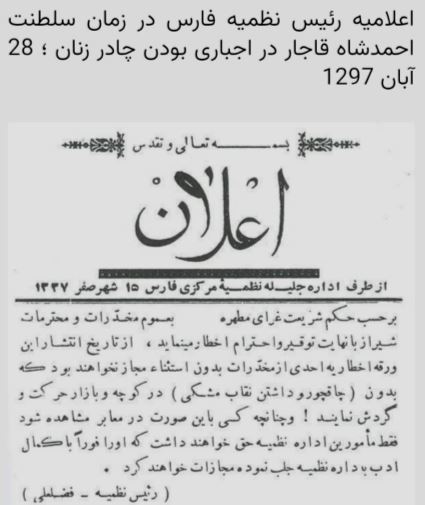 اعلامیه رئیس نظمیه فارس در زمان سلطنت
احمدشاه قاجار در اجباری بودن چادر زنان ؛ 28
آبان 1297
بسمه تعالی و تقدس
اعلان
از طرف اداره جلیله نظمیهٔ مرکزی فارس ۱۵ شهر صفر ۱۳۳۷
برحسب حکم شریعت غرای مطهره بعموم مخدرات و محترمات
شیراز با نهایت توقیر و احترام اخطار مینماید ، از تاریخ انتشار این
ورقه اخطاریه احدی از مخدرات بدون استثناء مجاز نخواهند بود که
بدون ( چاقچور و داشتن نقاب مشکی ) در کوچه و بازار حرکت و
گردش نمایند ! و چنانچه کسی باین صورت در معابر مشاهده شود
فقط مأمورین اداره نظمیه حق خواهند داشت که اورا فوراً با کمال
ادب باداره نظمیه جلب نموده مجازات خواهند کرد .
( رئیس نظمیه - فضلعلی )